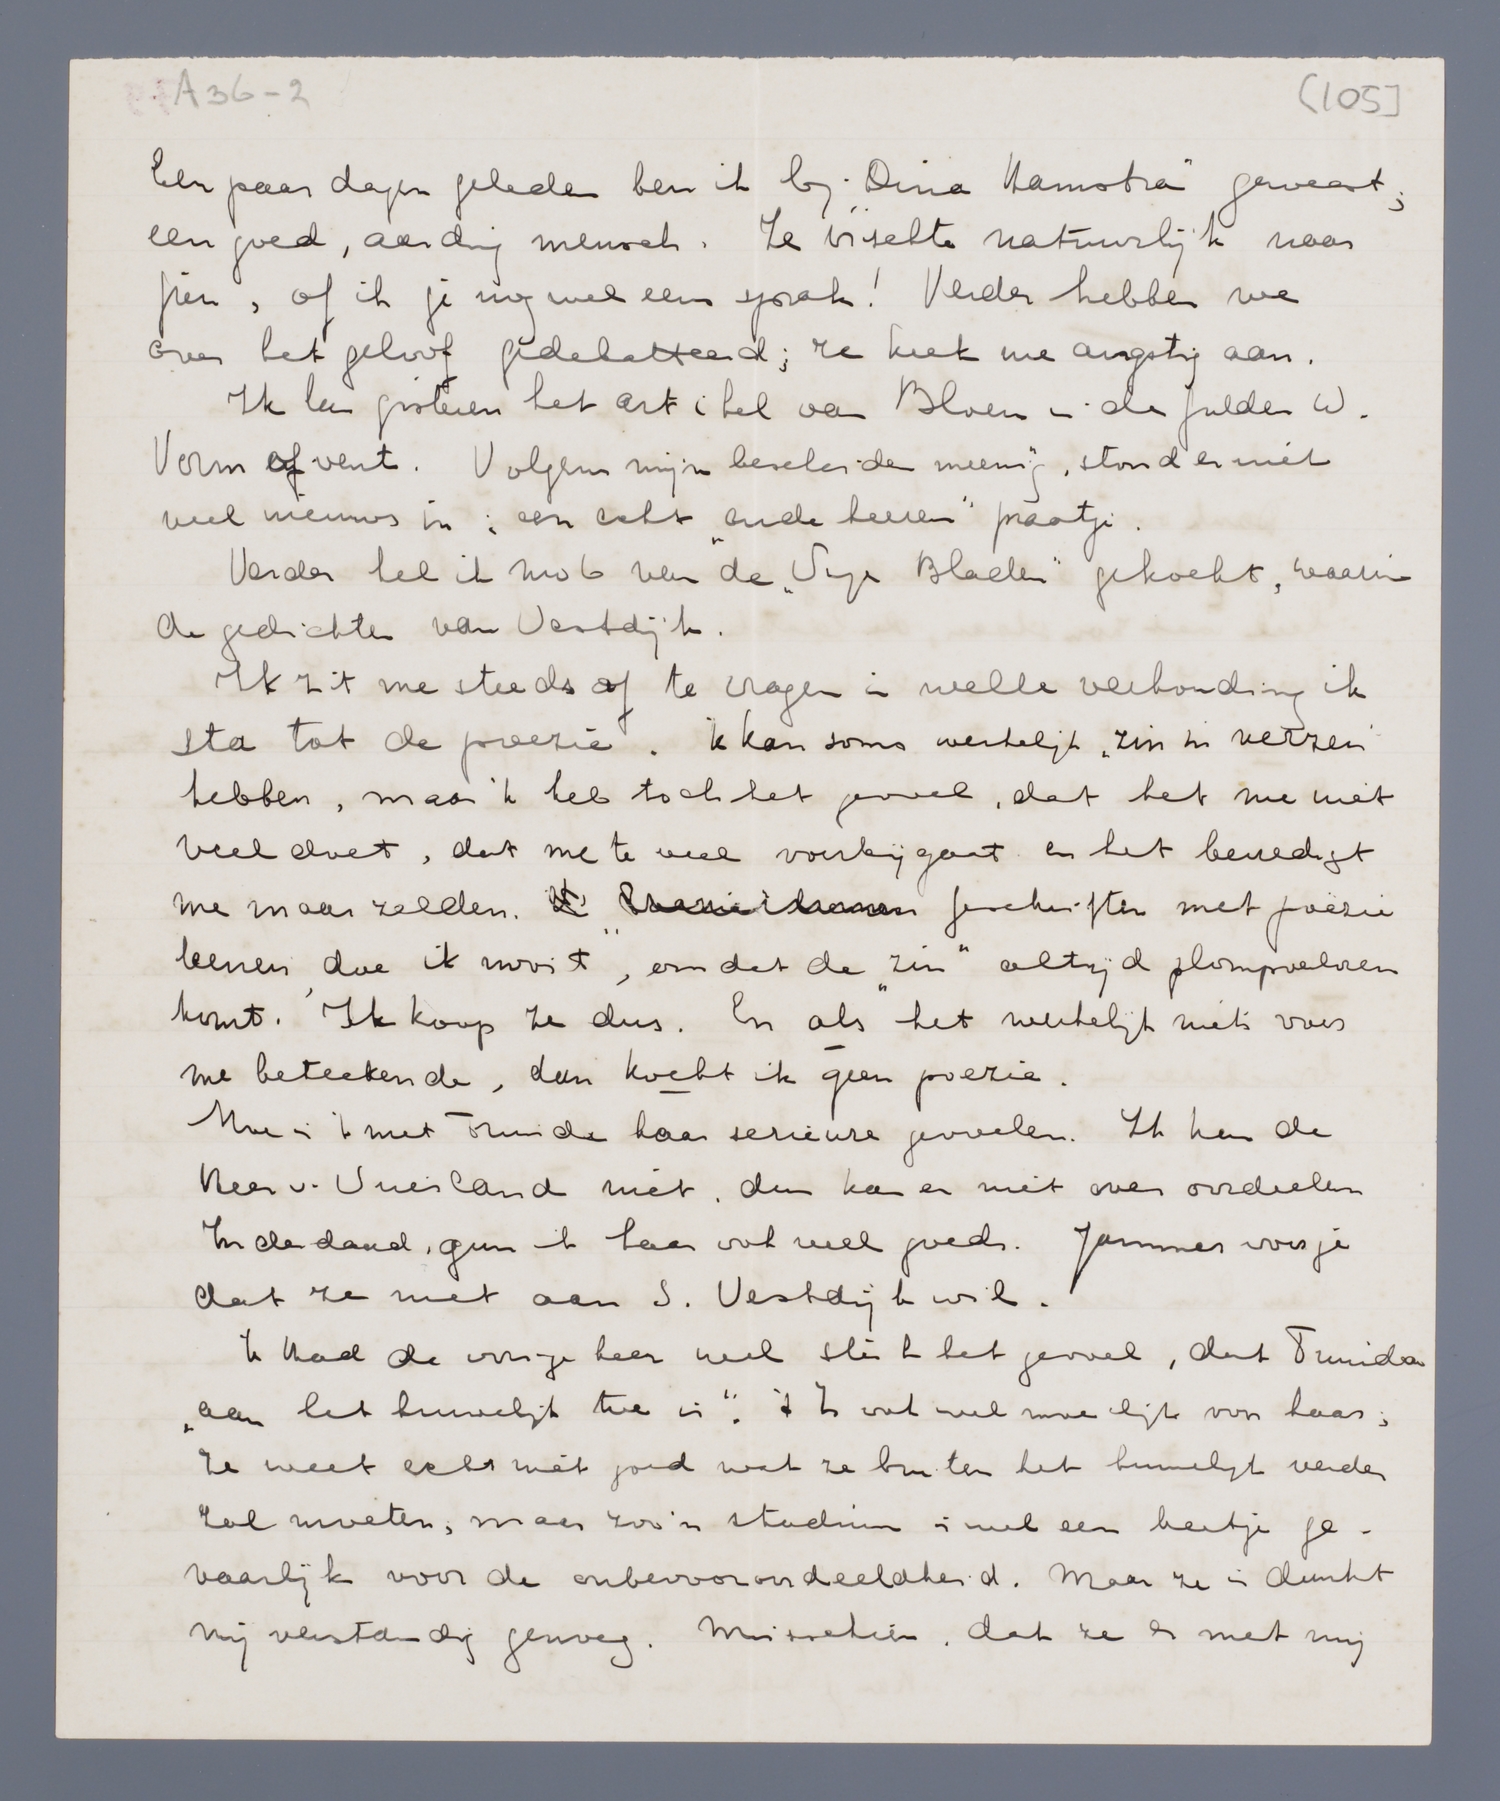 A36-2
(105]
Een paar dagen geleden ben ik bij "Dina Hamstra" geweest;
een goed, aardig mensch. Ze vischte natuurlijk naar
Jien, of ik je nog wel eens sprak! Verder hebben we
over het geloof gedebatteerd; ze keek me angstig aan.
Ik las gisteren het artikel van Bloem in de Gulden W.
Vorm of vent. Volgens mijn bescheiden meening, stond er niet
veel nieuws in; een echt "oude heeren" praatje.
Verder heb ik no 6 van de "Vrije Bladen" gekocht, waarin
de gedichten van Vestdijk.
Ik zit me steeds af te vragen in welke verhouding ik
sta tot de poezie. Ik kan soms werkelijk "zin in verzen"
hebben, maar 'k heb toch het gevoel, dat het me niet
veel doet, dat me te veel voorbijgaat en het bevredigt
me maar zelden. Geschriften met poëzie
leenen, doe ik nooit, omdat de "zin" altijd plompverloren
komt. Ik koop ze dus. En als het werkelijk niets voor
me beteekende, dan kocht ik geen poezie.
Hoe is 't met Truida haar serieuze gevoelens. Ik ken de
Heer v. Vriesland niet, dus kan er niet over oordeelen
Inderdaad, gun ik haar ook veel goeds. Jammer voor je
dat ze niet aan S. Vestdijk wil.
Ik had de vorige keer wel sterk het gevoel, dat Truida
"aan het huwelijk toe is". 't Is ook wel moeilijk voor haar;
ze weet echt niet goed wat ze buiten het huwelijk verder
zal moeten; maar zoo'n stadium is wel een beetje ge-
vaarlijk voor de onbevooroordeeldheid. Maar ze is dunkt
mij verstandig genoeg. Misschien, dat ze er met mij